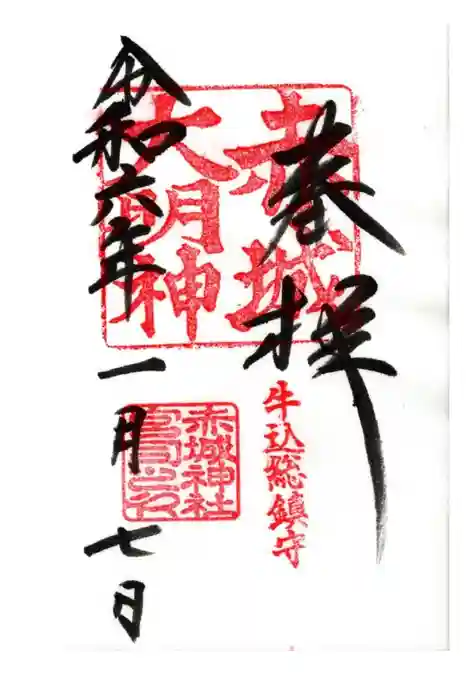 奉拝
赤城
大明神
牛込総鎮守
赤城神社
宮司之印
令和六年
一月
七日